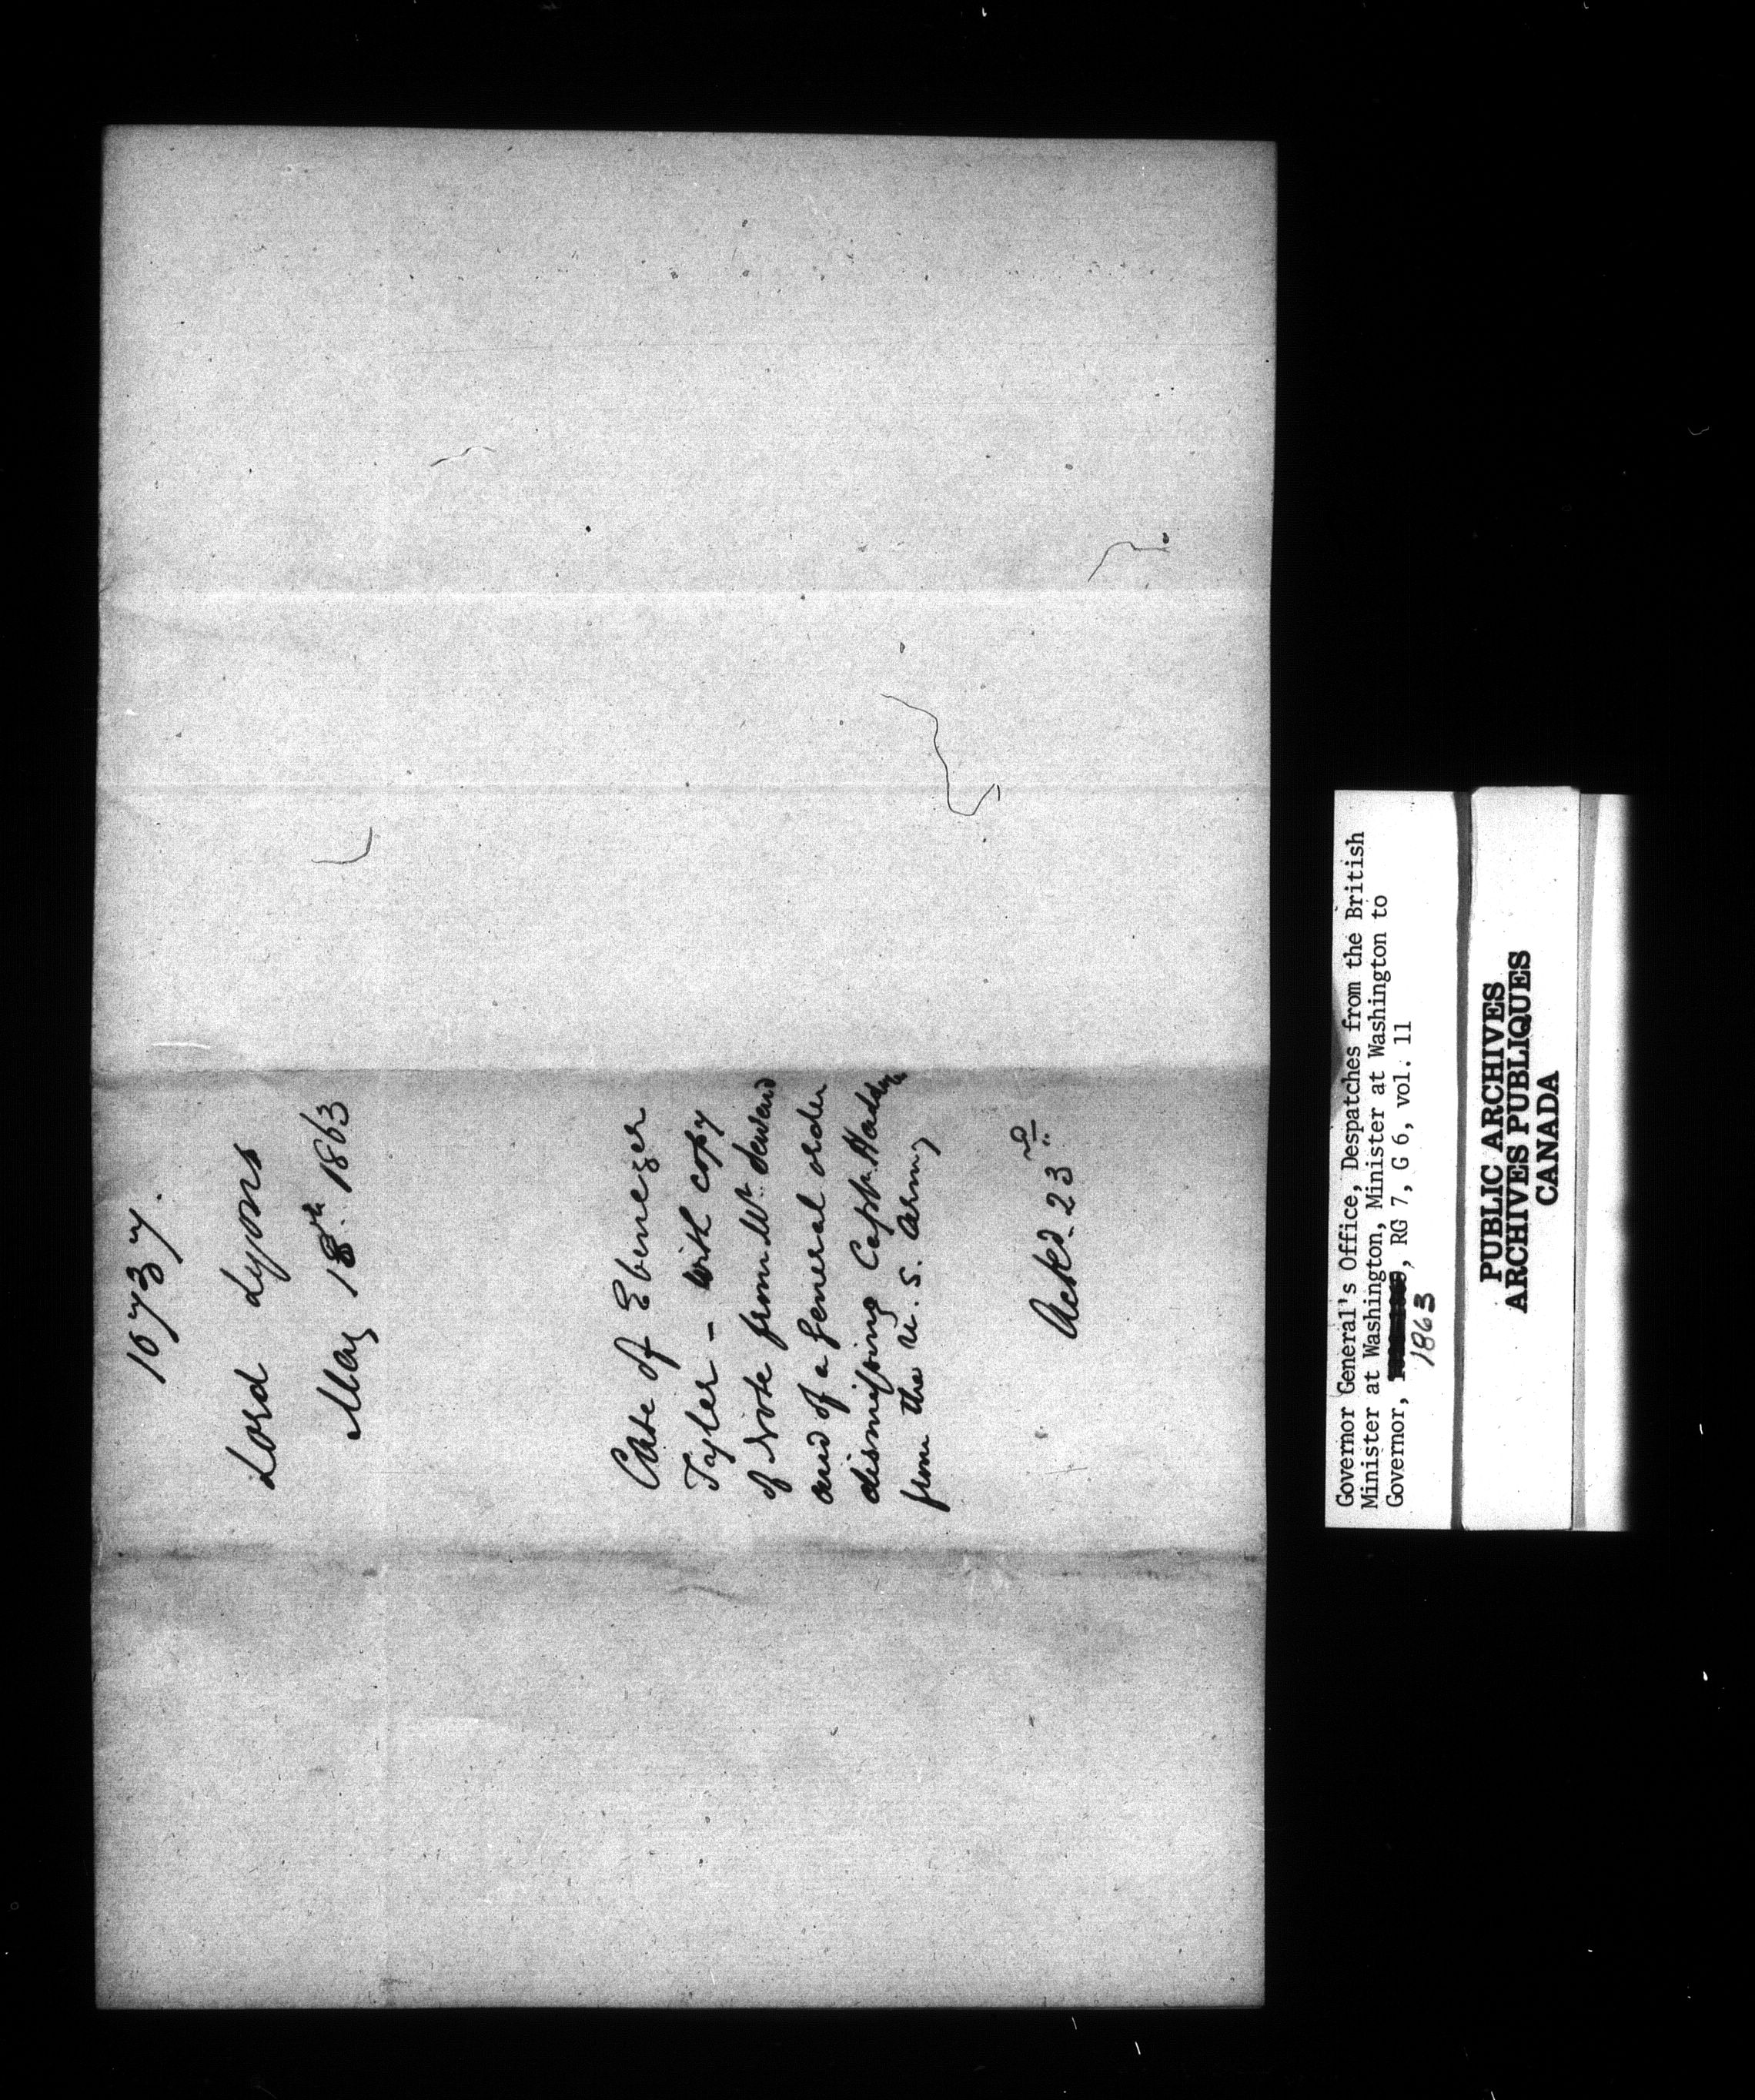 10737.
Lord Lyons
May 18th 1863
Case of Ebenezer
Tyler - with copy
of Note from Mr. Seward
and of a General order
dismissing Capt.
from the U. S. Army
Ackd. 23rd
Governor General's Office, Despatches from the British
Minister at Washington, Minister at Washington to
Governor, , RG 7, G 6, vol. 11
1863
PUBLIC ARCHIVES
ARCHIVES PUBLIQUES
CANADA